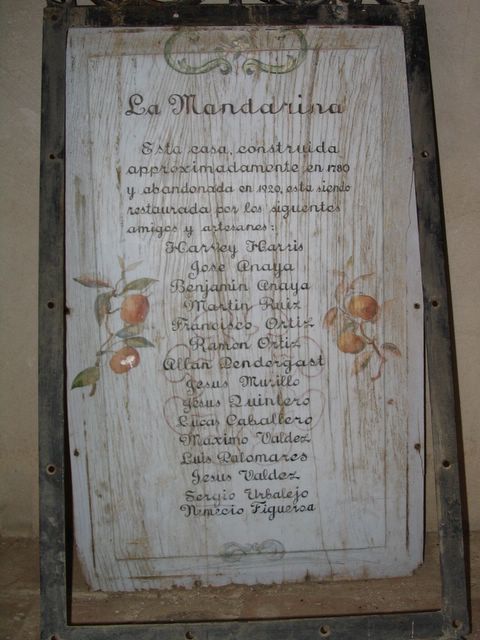 La Mandarina
Esta casa, construida
approximadamente en 1780
y abandonada en 1920, esta siendo
restaurada por los siguentes
amigos y artesanes:
Harvey Harris
Jose Anaya
Benjamin Anaya
Martin Ruiz
Francisco Ortiz
Ramon Ortiz
Allan Pendergast
Jesus Murillo
Jesus Quintero
Lucas Caballero
Maximo Valdez
Luis Palomares
Jesus Valdez
Sergio Urbalejo
Nemecio Figueroa